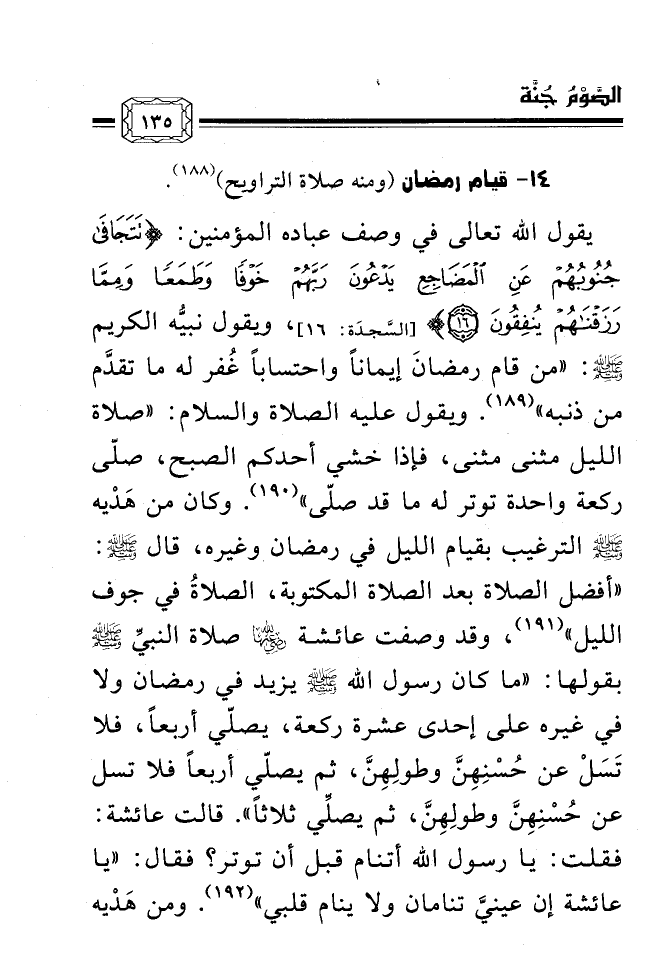 الصَّوْمُ جُنَّة
١٣٥
١٤- قيام رمضان (ومنه صلاة التراويح)(١٨٨).
يقول الله تعالى في وصف عباده المؤمنين: ﴿نَتَجَافَىٰ
جُنُوبُهُمْ عَنِ ٱلْمَضَاجِعِ يَدْعُونَ رَبَّهُمْ خَوْفًا وَطَمَعًا وَمِمَّا
رَزَقْنَـٰهُمْ يُنفِقُونَ ١٦﴾ [السَّجدَة: ١٦]، ويقول نبيُّه الكريم
ﷺ: «من قام رمضانَ إيماناً واحتساباً غُفر له ما تقدَّم
من ذنبه»(١٨٩). ويقول عليه الصلاة والسلام: «صلاة
الليل مثنى مثنى، فإذا خشي أحدكم الصبح، صلّى
ركعة واحدة توتر له ما قد صلّى»(١٩٠). وكان من هَدْيه
ﷺ الترغيب بقيام الليل في رمضان وغيره، قال ﷺ:
«أفضل الصلاة بعد الصلاة المكتوبة، الصلاةُ في جوف
الليل»(١٩١)، وقد وصفت عائشة رضي الله عنها صلاة النبيِّ ﷺ
بقولها: «ما كان رسول الله ﷺ يزيد في رمضان ولا
في غيره على إحدى عشرة ركعة، يصلّي أربعاً، فلا
تَسَلْ عن حُسْنِهِنَّ وطولِهِنَّ، ثم يصلّي أربعاً فلا تسل
عن حُسْنِهِنَّ وطولِهِنَّ، ثم يصلِّي ثلاثاً». قالت عائشة:
فقلت: يا رسول الله أتنام قبل أن توتر؟ فقال: «يا
عائشة إن عينيَّ تنامان ولا ينام قلبي»(١٩٢). ومن هَدْيه